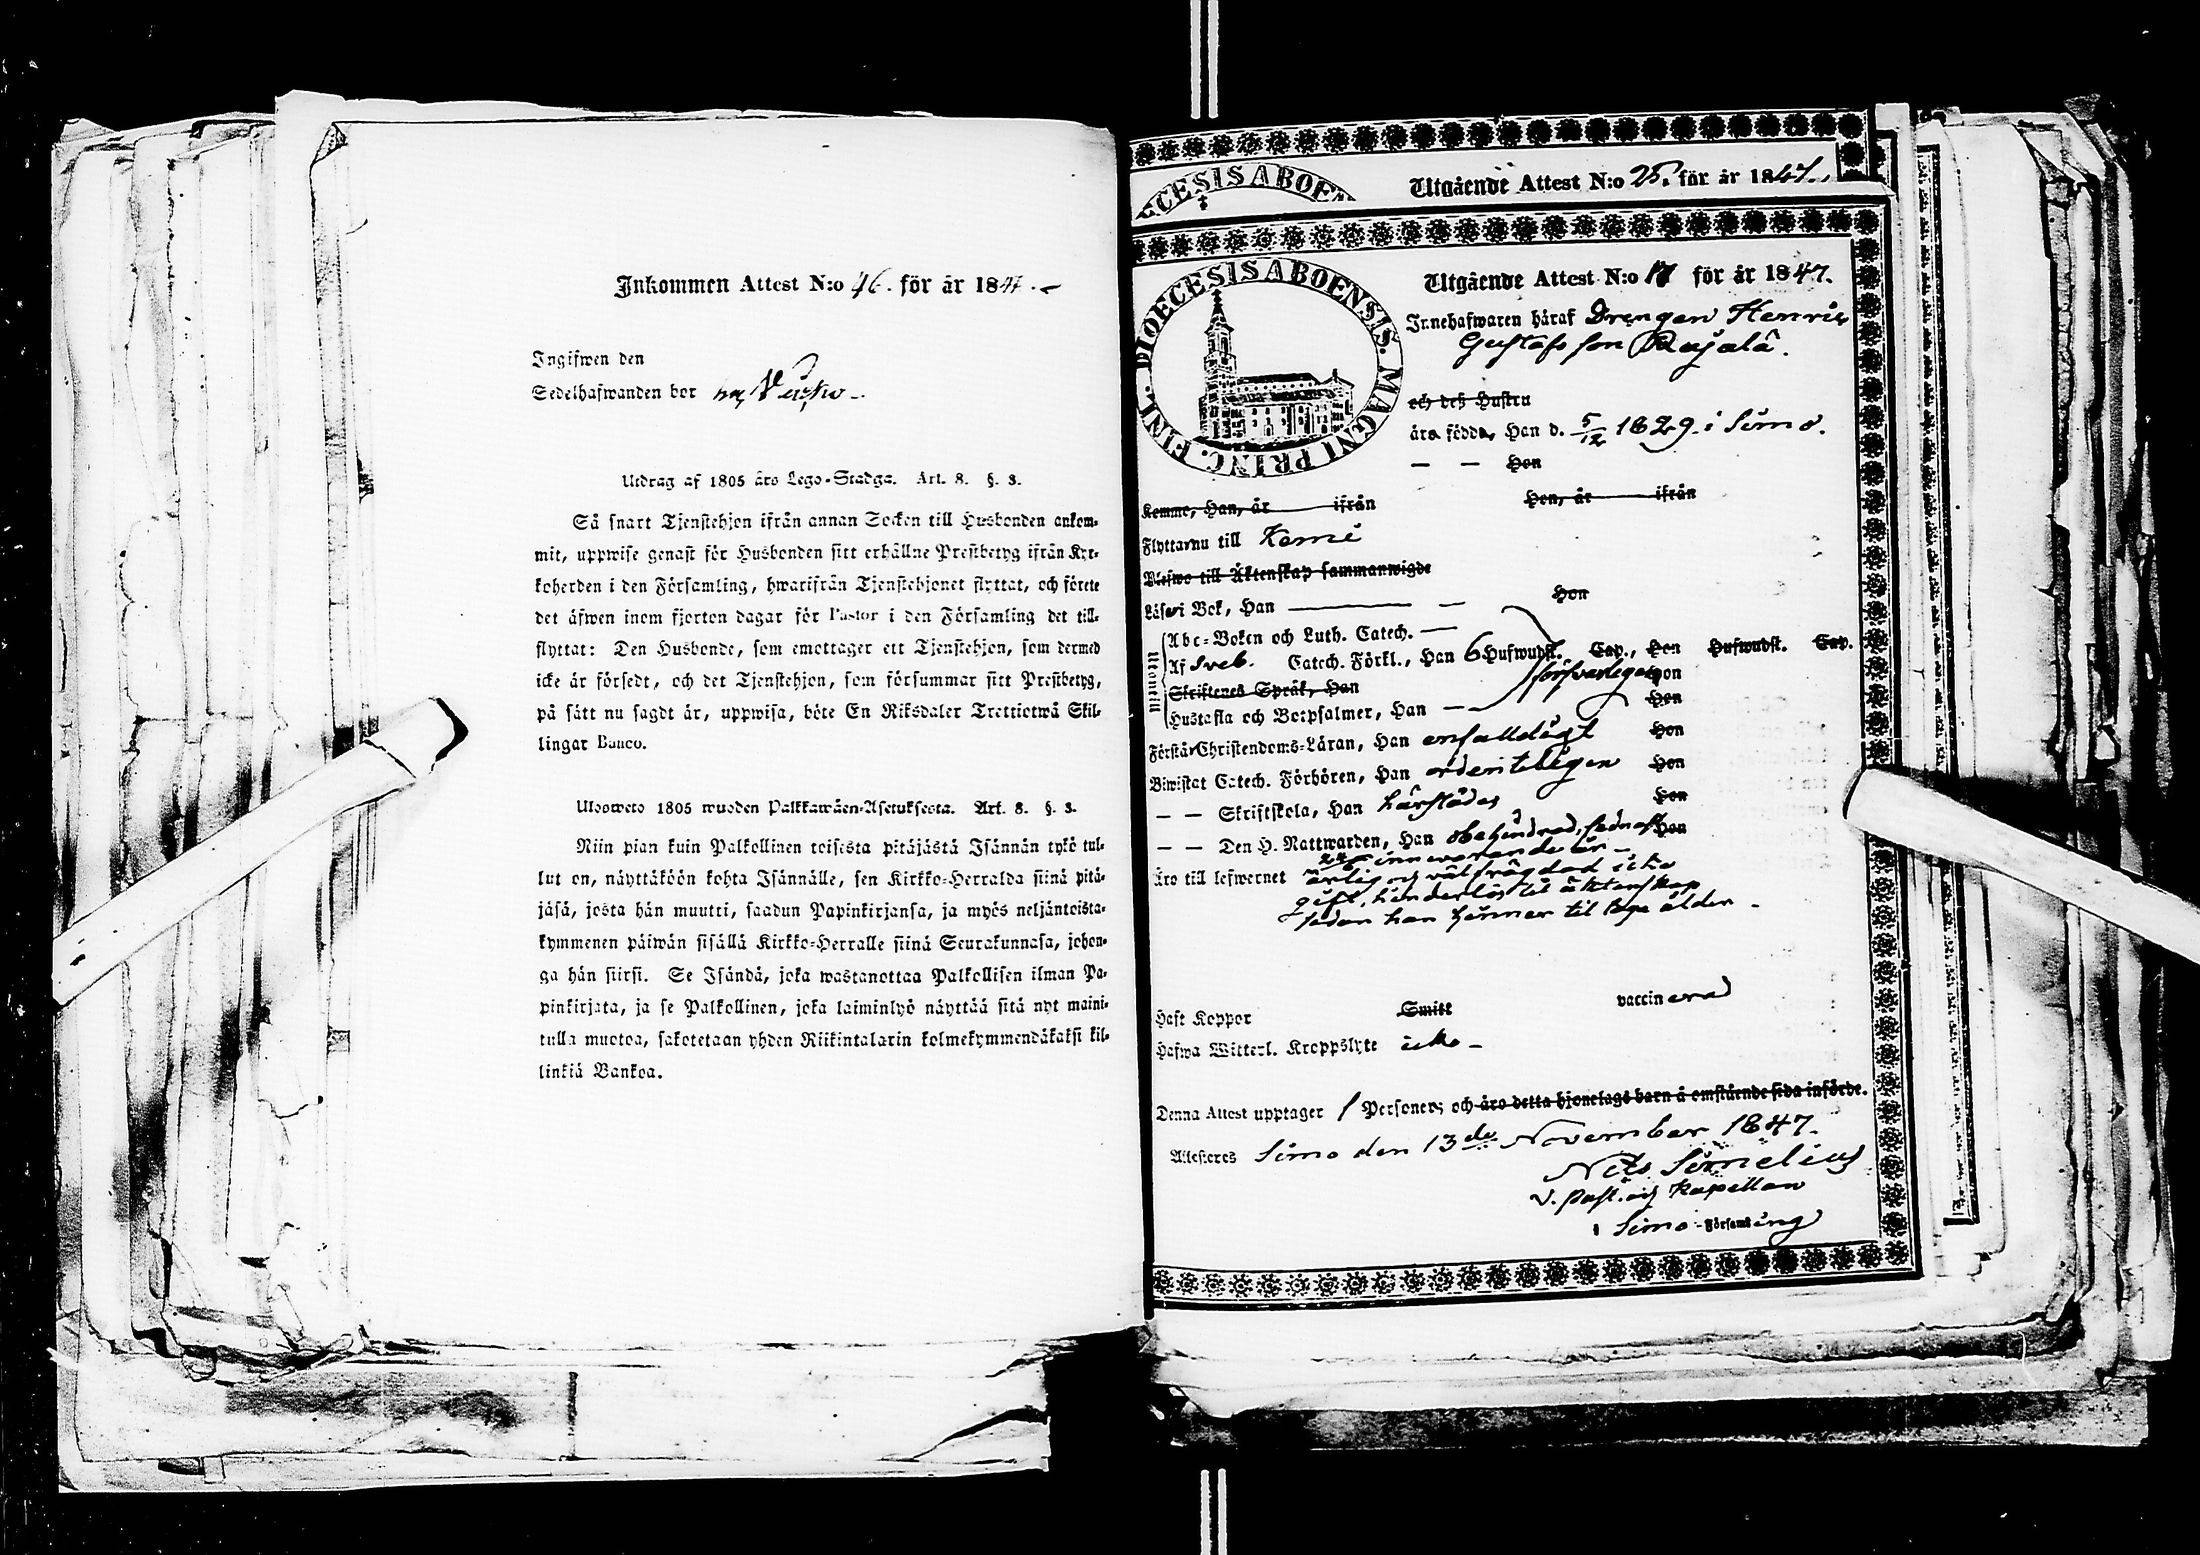 Inkommen Attest N:o 46. för år 1847.
Ingifwen den
Sedelhafwanden bor
Utdrag af 1805 års Lego-Stadga. Art. 8. §. 3.
Så snart Tjenstehjon ifrån annan Socken till Husbonden ankom-
mit, uppwise genast för Husbonden sitt erhållne Prestbetyg ifrån Kyr-
koherden i den Församling, hwarifrån Tjenstehjonet flyttat, och förete
det äfwen inom fjorton dagar för Pastor i den Församling det till-
flyttat: Den Husbonde, som emottager ett Tjenstehjon, som dermed
icke är försedt, och det Tjenstehjon, som försummar sitt Prestbetyg,
på sätt nu sagdt är, uppwisa, böte En Riksdaler Trettiotwå Skil-
lingar Banco.
Ulosweto 1805 wuoden Palkkawäen-Asetuksesta. Art. 8. §. 3.
Niin pian kuin Palkollinen toisesta pitäjästä Isännän tykö tul-
lut on, näyttäköön kohta Isännälle, sen Kirkko-Herralda siinä pitä-
jäsä, josta hän muutti, saadun Papinkirjansa, ja myös neljäntoista-
kymmenen päiwän sisällä Kirkko-Herralle siinä Seurakunnasa, johon-
ga hän siirsi. Se Isändä, joka wastanottaa Palkollisen ilman Pa-
pinkirjata, ja se Palkollinen, joka laiminlyö näyttää sitä nyt maini-
tulla muotoa, sakotetaan yhden Riikintalarin kolmekymmendäkaksi kil-
linkiä Bankoa.
Utgående Attest N:o 25. för år 1847.
DIOECESIS ABOENSIS. MAGNI PRINC. FINL.
Utgående Attest N:o 17 för år 1847.
Innehafwaren häraf Drengen Henric
Gustafsson Rajala.
och dess Hustru
äro födde, Han d. 5/12 1829. i Simo.
— — Hon
Komne, Han, år ifrån Hon, år ifrån
Flyttar nu till Kemi
Blefwo till Äktenskap sammanwigde
Läser i Bok, Han — — Hon
Abc-Boken och Luth. Catech. —
Af Sveb. Catech. Förkl., Han 6 Hufwudst. Cap., Hon Hufwudst. Cap.
Skriftenes Språk, Han försvarligen Hon
Hustafla och Botpsalmer, Han — Hon
Förstår Christendoms-Läran, Han enfaldigt Hon
Biwistat Catech. Förhören, Han ordenteligen Hon
— — Skriftskola, Han härstädes Hon
— — Den H. Nattwarden, Han obehindrad, sednast Hon
innevarande år —
Äro till lefwernet ärlig och välfrägdad icke
gift, hinderlös til äktenskap
sedan han hinner til laga ålder.
Haft Koppor Smitt vaccinerad
Hafwa Witterl. Kroppslyte icke —
Denna Attest upptager 1 Personer, och äro detta hjonelags barn å omstående sida införde.
Attesteres Simo den 13de November 1847.
Nils Simelius
V. Past. och Kapellan
i Simo Församling